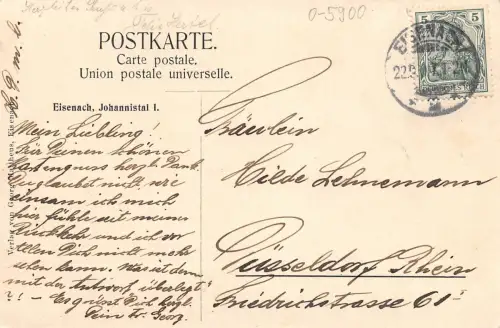 0-5900
POSTKARTE.
Carte postale.
Union postale universelle.
5 5
EISENACH
Eisenach, Johannistal I.
Mein Liebling!
Für Deinen schönen
Kartengruss herzl. Dank.
Du glaubst nicht, wie
einsam ich mich
hier fühle seit meiner
Rückkehr und ich Dich
nicht mehr
sehen kann. Was ist denn
mit der Antwort überlegt
?! – Es grüsst Dich herzl.
Dein Georg.
Fräulein
Hilde Lehnemann
Düsseldorf Rhein
Friedrichstrasse 61
Verlag von Georg